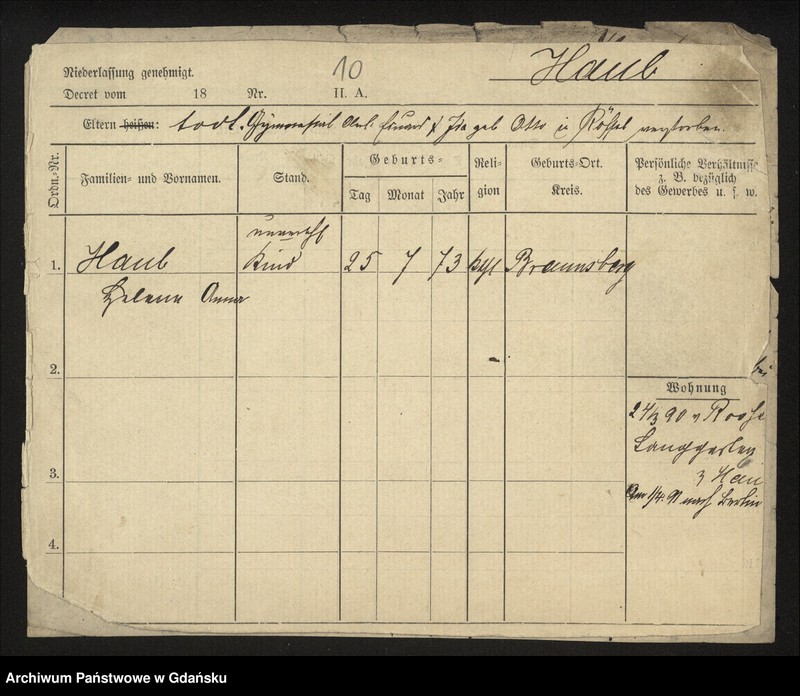 10
Haub
Niederlassung genehmigt.
Decret vom 18 Nr. II. A.
Eltern heißen: todt. Gymnasial Eduard & Ida geb Otto in Rößel verstorben.
Ordn.-Nr.
Familien- und Vornamen.
Stand.
Geburts-
Tag Monat Jahr
Reli-
gion
Geburts-Ort.
Kreis.
Persönliche Verhältnisse
z. B. bezüglich
des Gewerbes u. s. w.
1. Haub
Kind 25 7 73 Braunsberg
Helene Anna
2.
Wohnung
24/3 90 v Rößel
Langgarten
3.
Am 1/4. 91 nach Berlin
4.
Archiwum Państwowe w Gdańsku